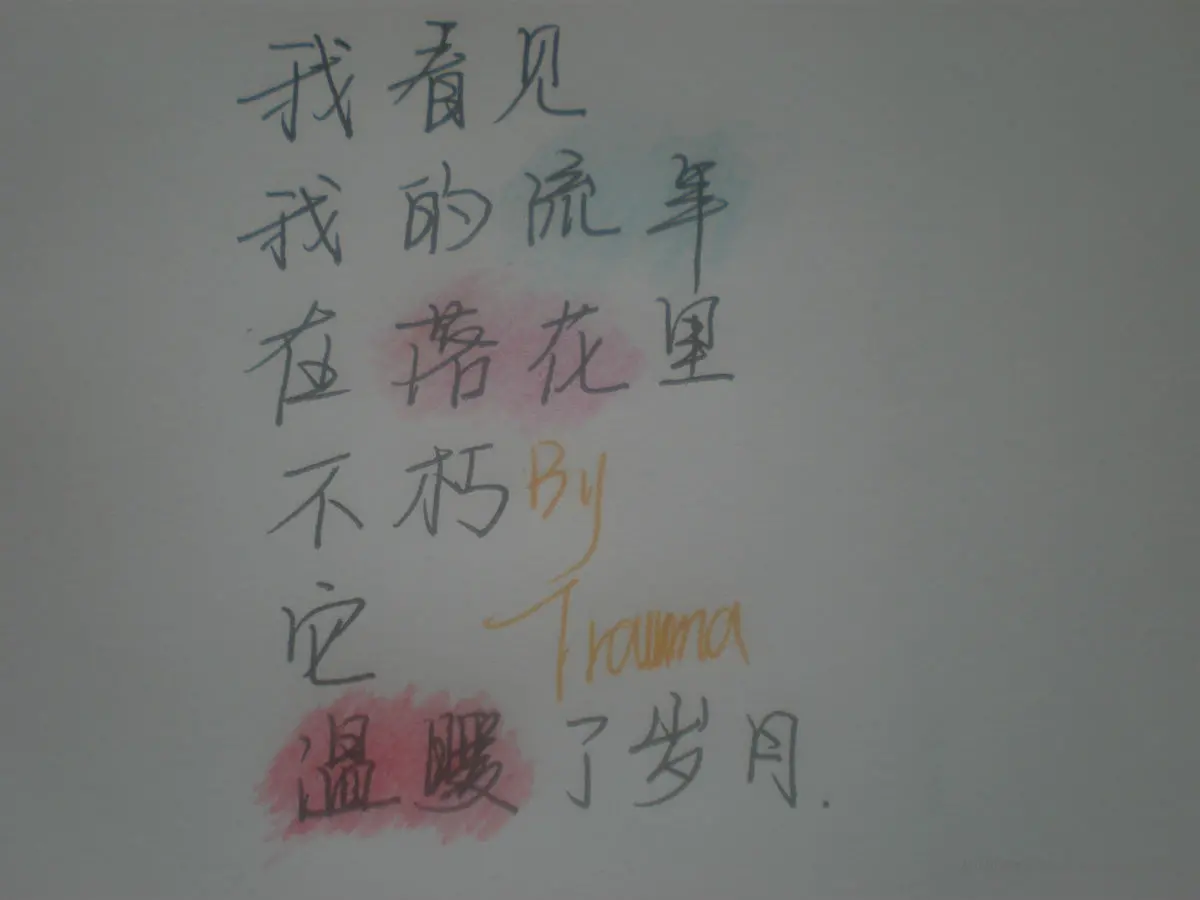 我看见
我的流年
在落花里
不朽 By
它 Trauma
温暖了岁月.